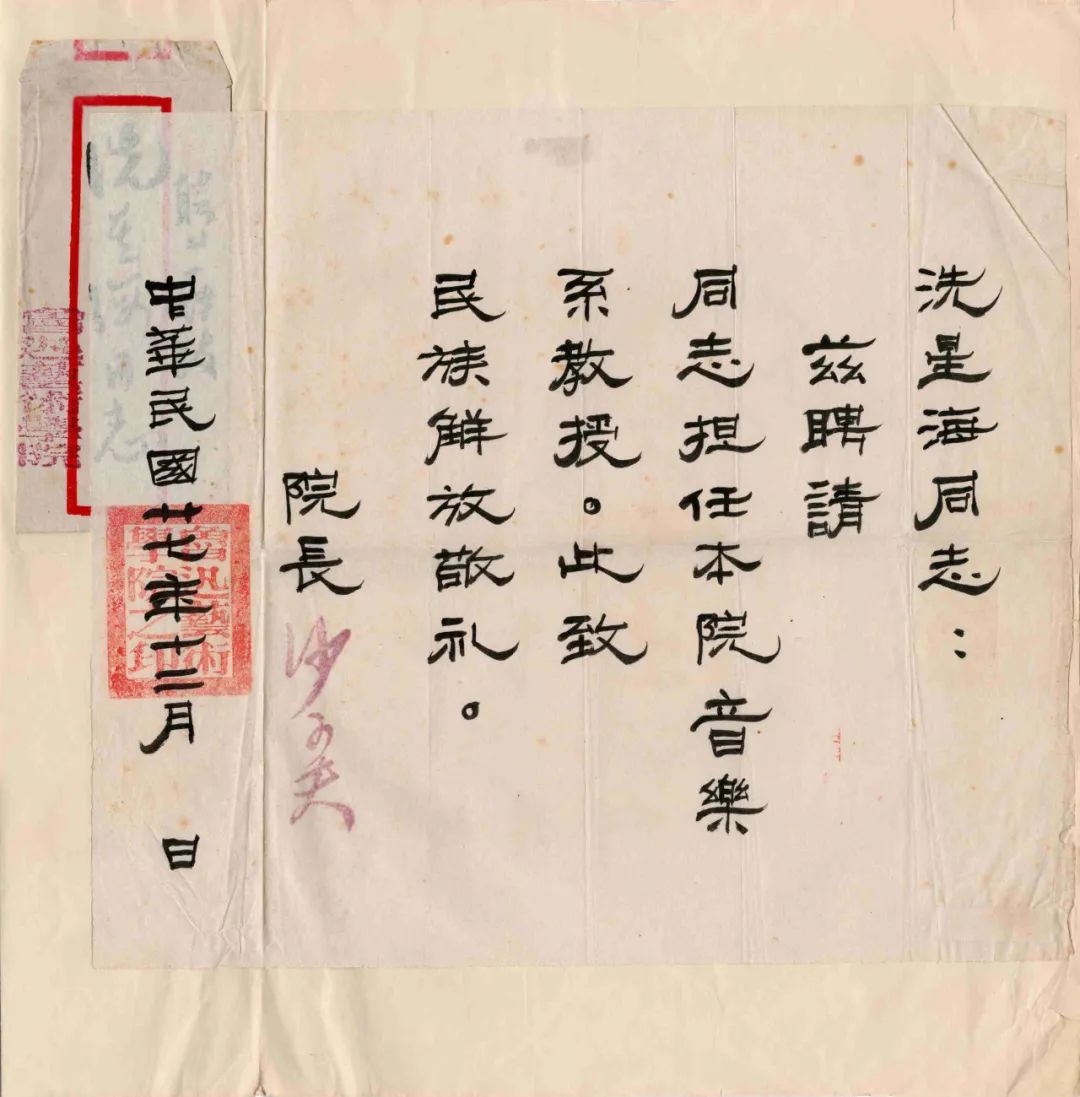 洗星海同志：
茲聘請
同志担任本院音樂
系教授。此致
民族解放敬礼。
院長 沙可夫
中華民國廿七年十二月 日
魯迅藝術
學院之印
同志
魯迅藝術學院